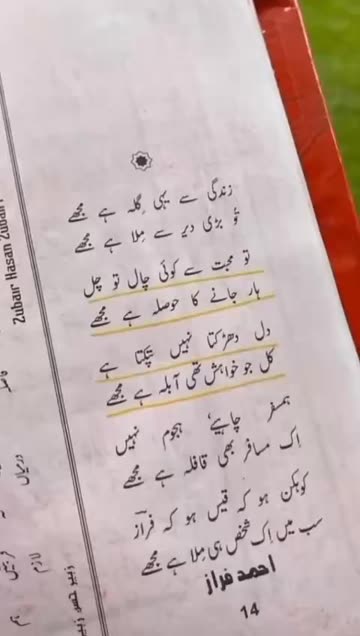 زندگی سے یہی گلہ ہے مجھے
تُو بڑی دیر سے ملا ہے مجھے
تو محبت سے کوئی چال تو چل
ہار جانے کا حوصلہ ہے مجھے
دل دھڑکتا نہیں ٹپکتا ہے
کل جو خواہش تھی آبلہ ہے مجھے
ہمسفر چاہیے، ہجوم نہیں
اک مسافر بھی قافلہ ہے مجھے
کوہکن ہو کہ قیس ہو کہ فرازؔ
سب میں اِک شخص ہی مِلا ہے مجھے
احمد فراز
14
Zubair Hasan Zubair
زبیر حسن زبیر